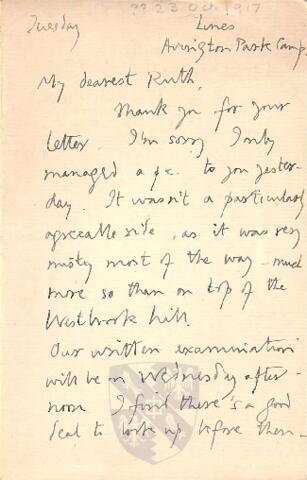 ?? 23 Oct 1917
Tuesday
Lines
Avington Park Camp.
My dearest Ruth,
Thank you for your
letter. I'm sorry I only
managed a p.c. to you yester-
day. It wasn't a particularly
agreeable ride, as it was very
misty most of the way - much
more so than on top of the
Westbrook hill.
Our written examination
will be on Wednesday after-
noon. I find there's a good
deal to work up before then -